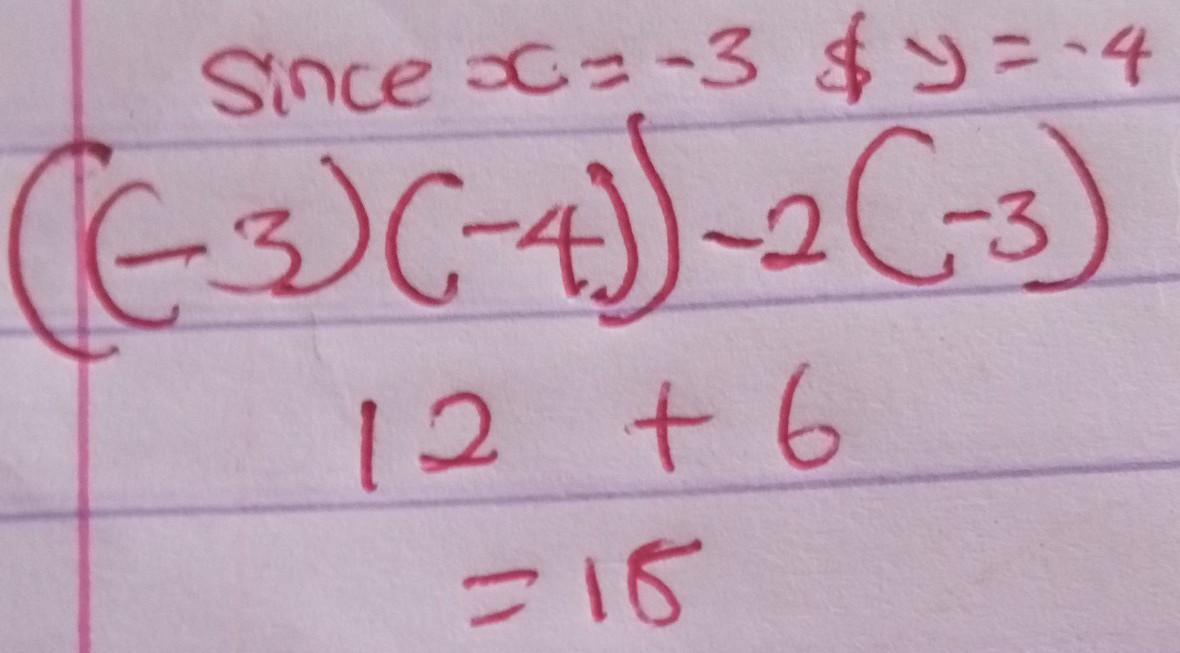 Since x = -3 & y = -4
((-3)(-4)) -2(-3)
12 + 6
= 18